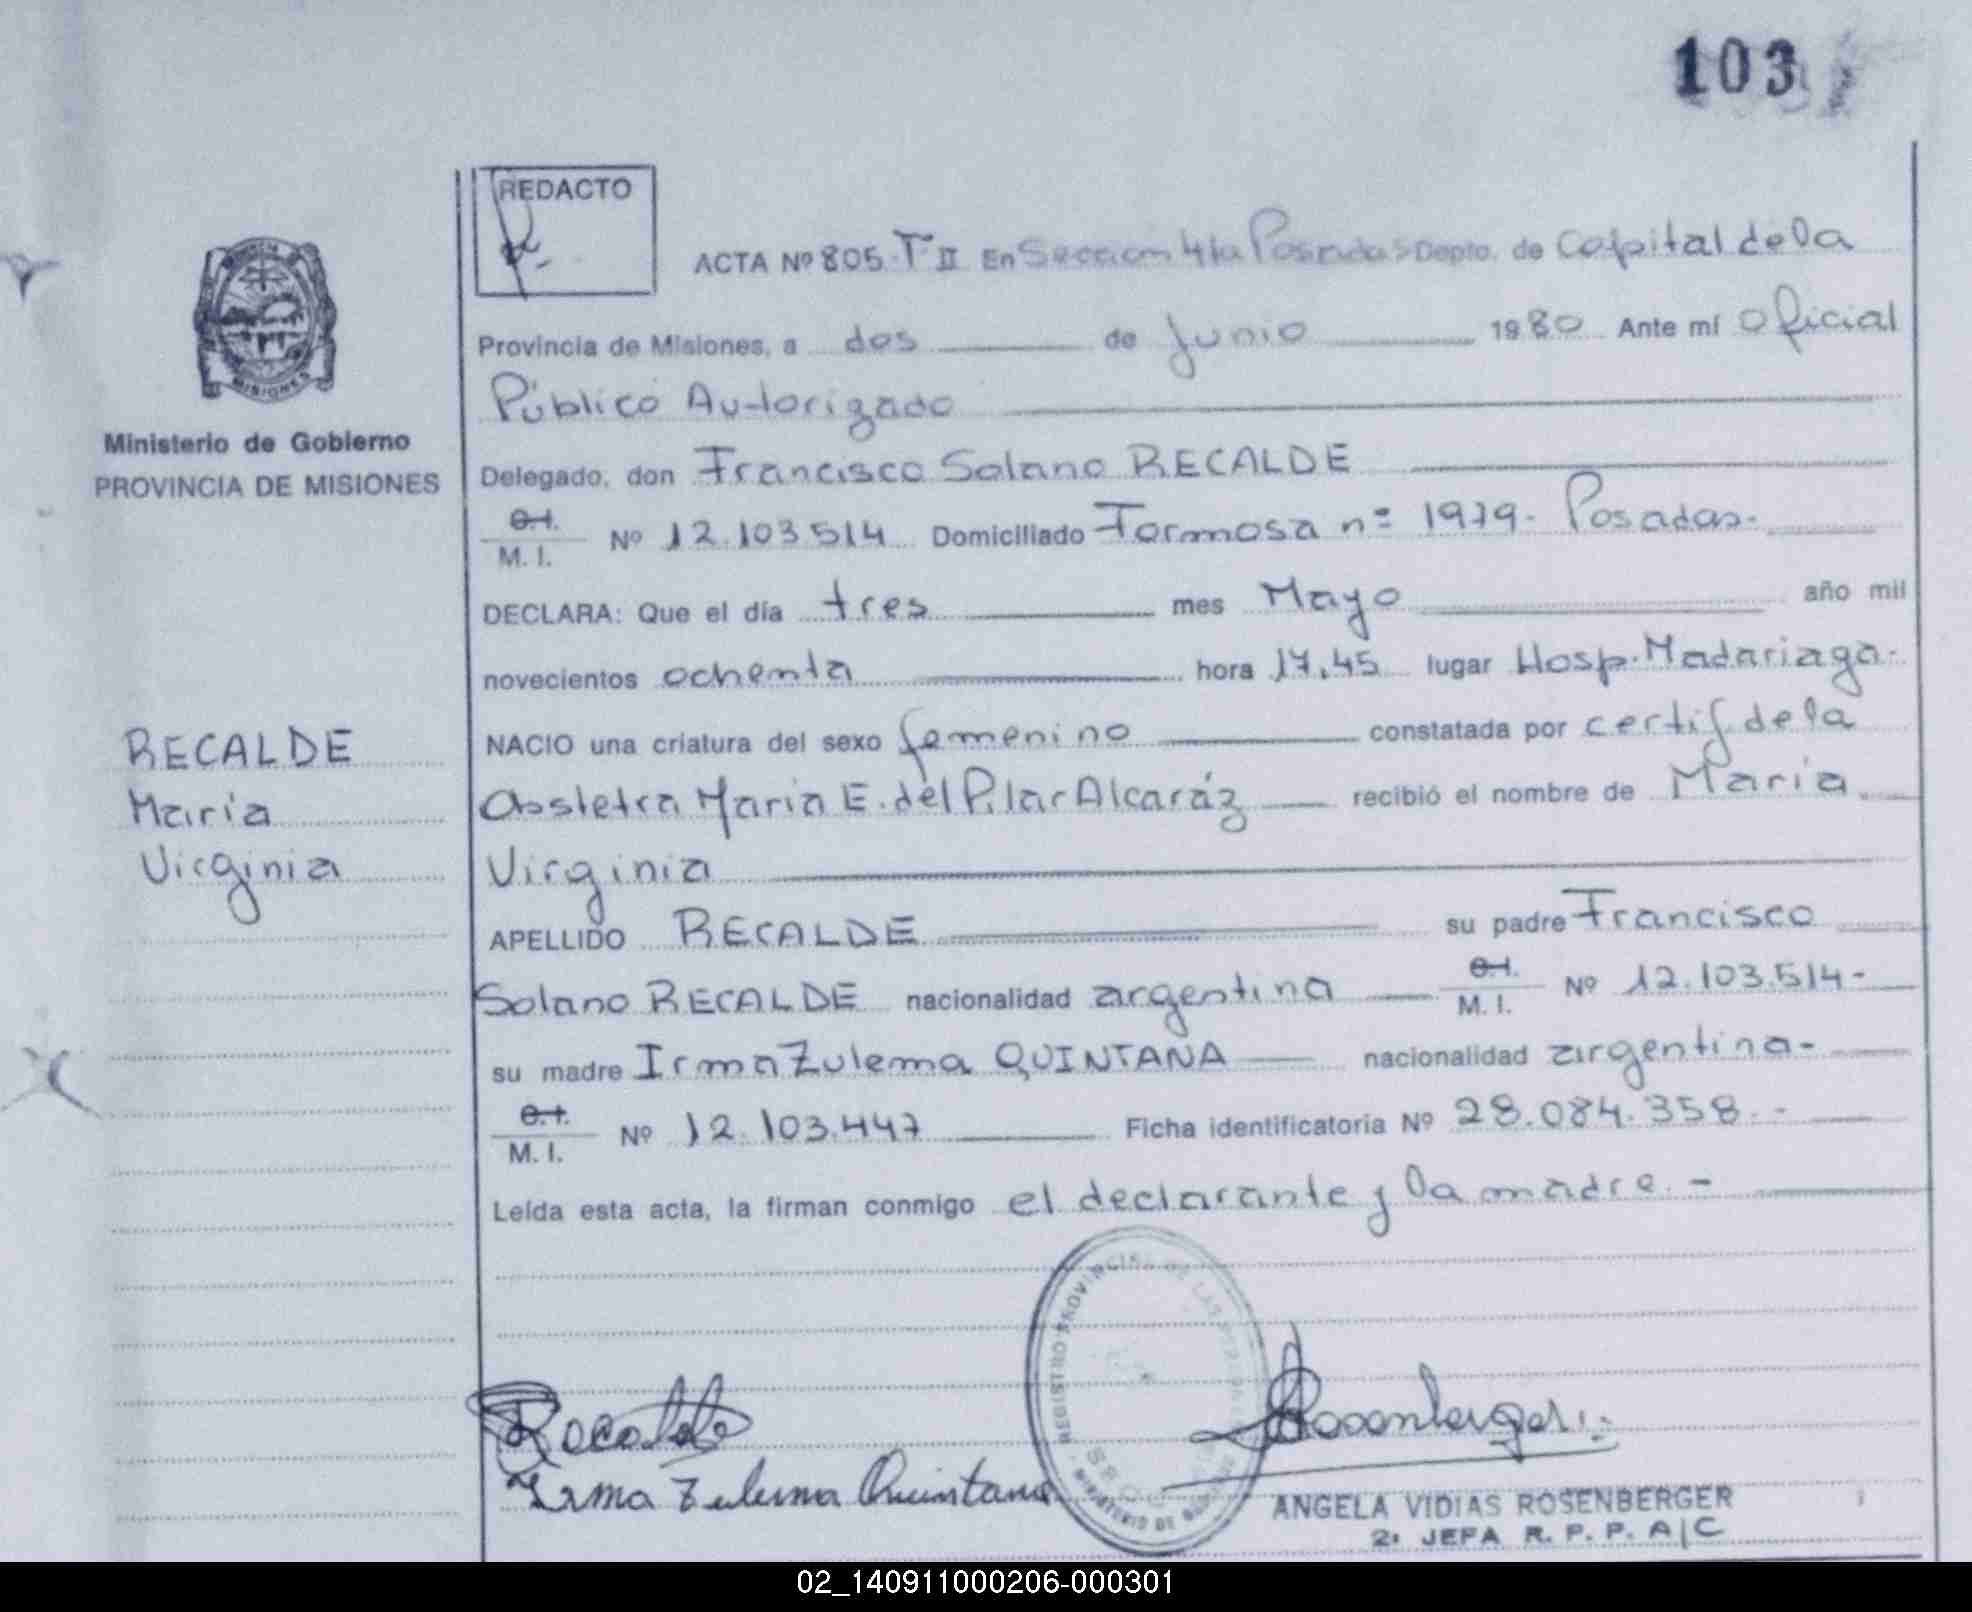 103
REDACTO
ACTA Nº 805. Tº II En Sección 4ta Posadas Depto. de Capital de la
Provincia de Misiones, a dos de Junio 1980 Ante mí Oficial
Público Autorizado
Ministerio de Gobierno
PROVINCIA DE MISIONES
MISIONES
Delegado, don Francisco Solano RECALDE
C.I.
M. I. Nº 12.103514 Domiciliado Formosa nº 1979. Posadas.
DECLARA: Que el día tres mes Mayo año mil
novecientos ochenta hora 17,45 lugar Hosp. Madariaga.
RECALDE
María
Virginia
NACIO una criatura del sexo femenino constatada por certif de la
Obstetra Maria E. del Pilar Alcaráz recibió el nombre de María
Virginia
APELLIDO RECALDE su padre Francisco
Solano RECALDE nacionalidad argentina C.I. M. I. Nº 12.103.514-
su madre Irma Zulema QUINTANA nacionalidad argentina-
C.I.
M. I. Nº 12.103.447 Ficha identificatoria Nº 28.084.358.-
Leída esta acta, la firman conmigo el declarante y la madre.-
REGISTRO PROVINCIAL DE LAS PERSONAS
MINISTERIO DE GOBIERNO
Recalde
Irma Zulema Quintana
Rosenberger
ANGELA VIDIAS ROSENBERGER
2ª JEFA R. P. P. A/C
02_140911000206-000301